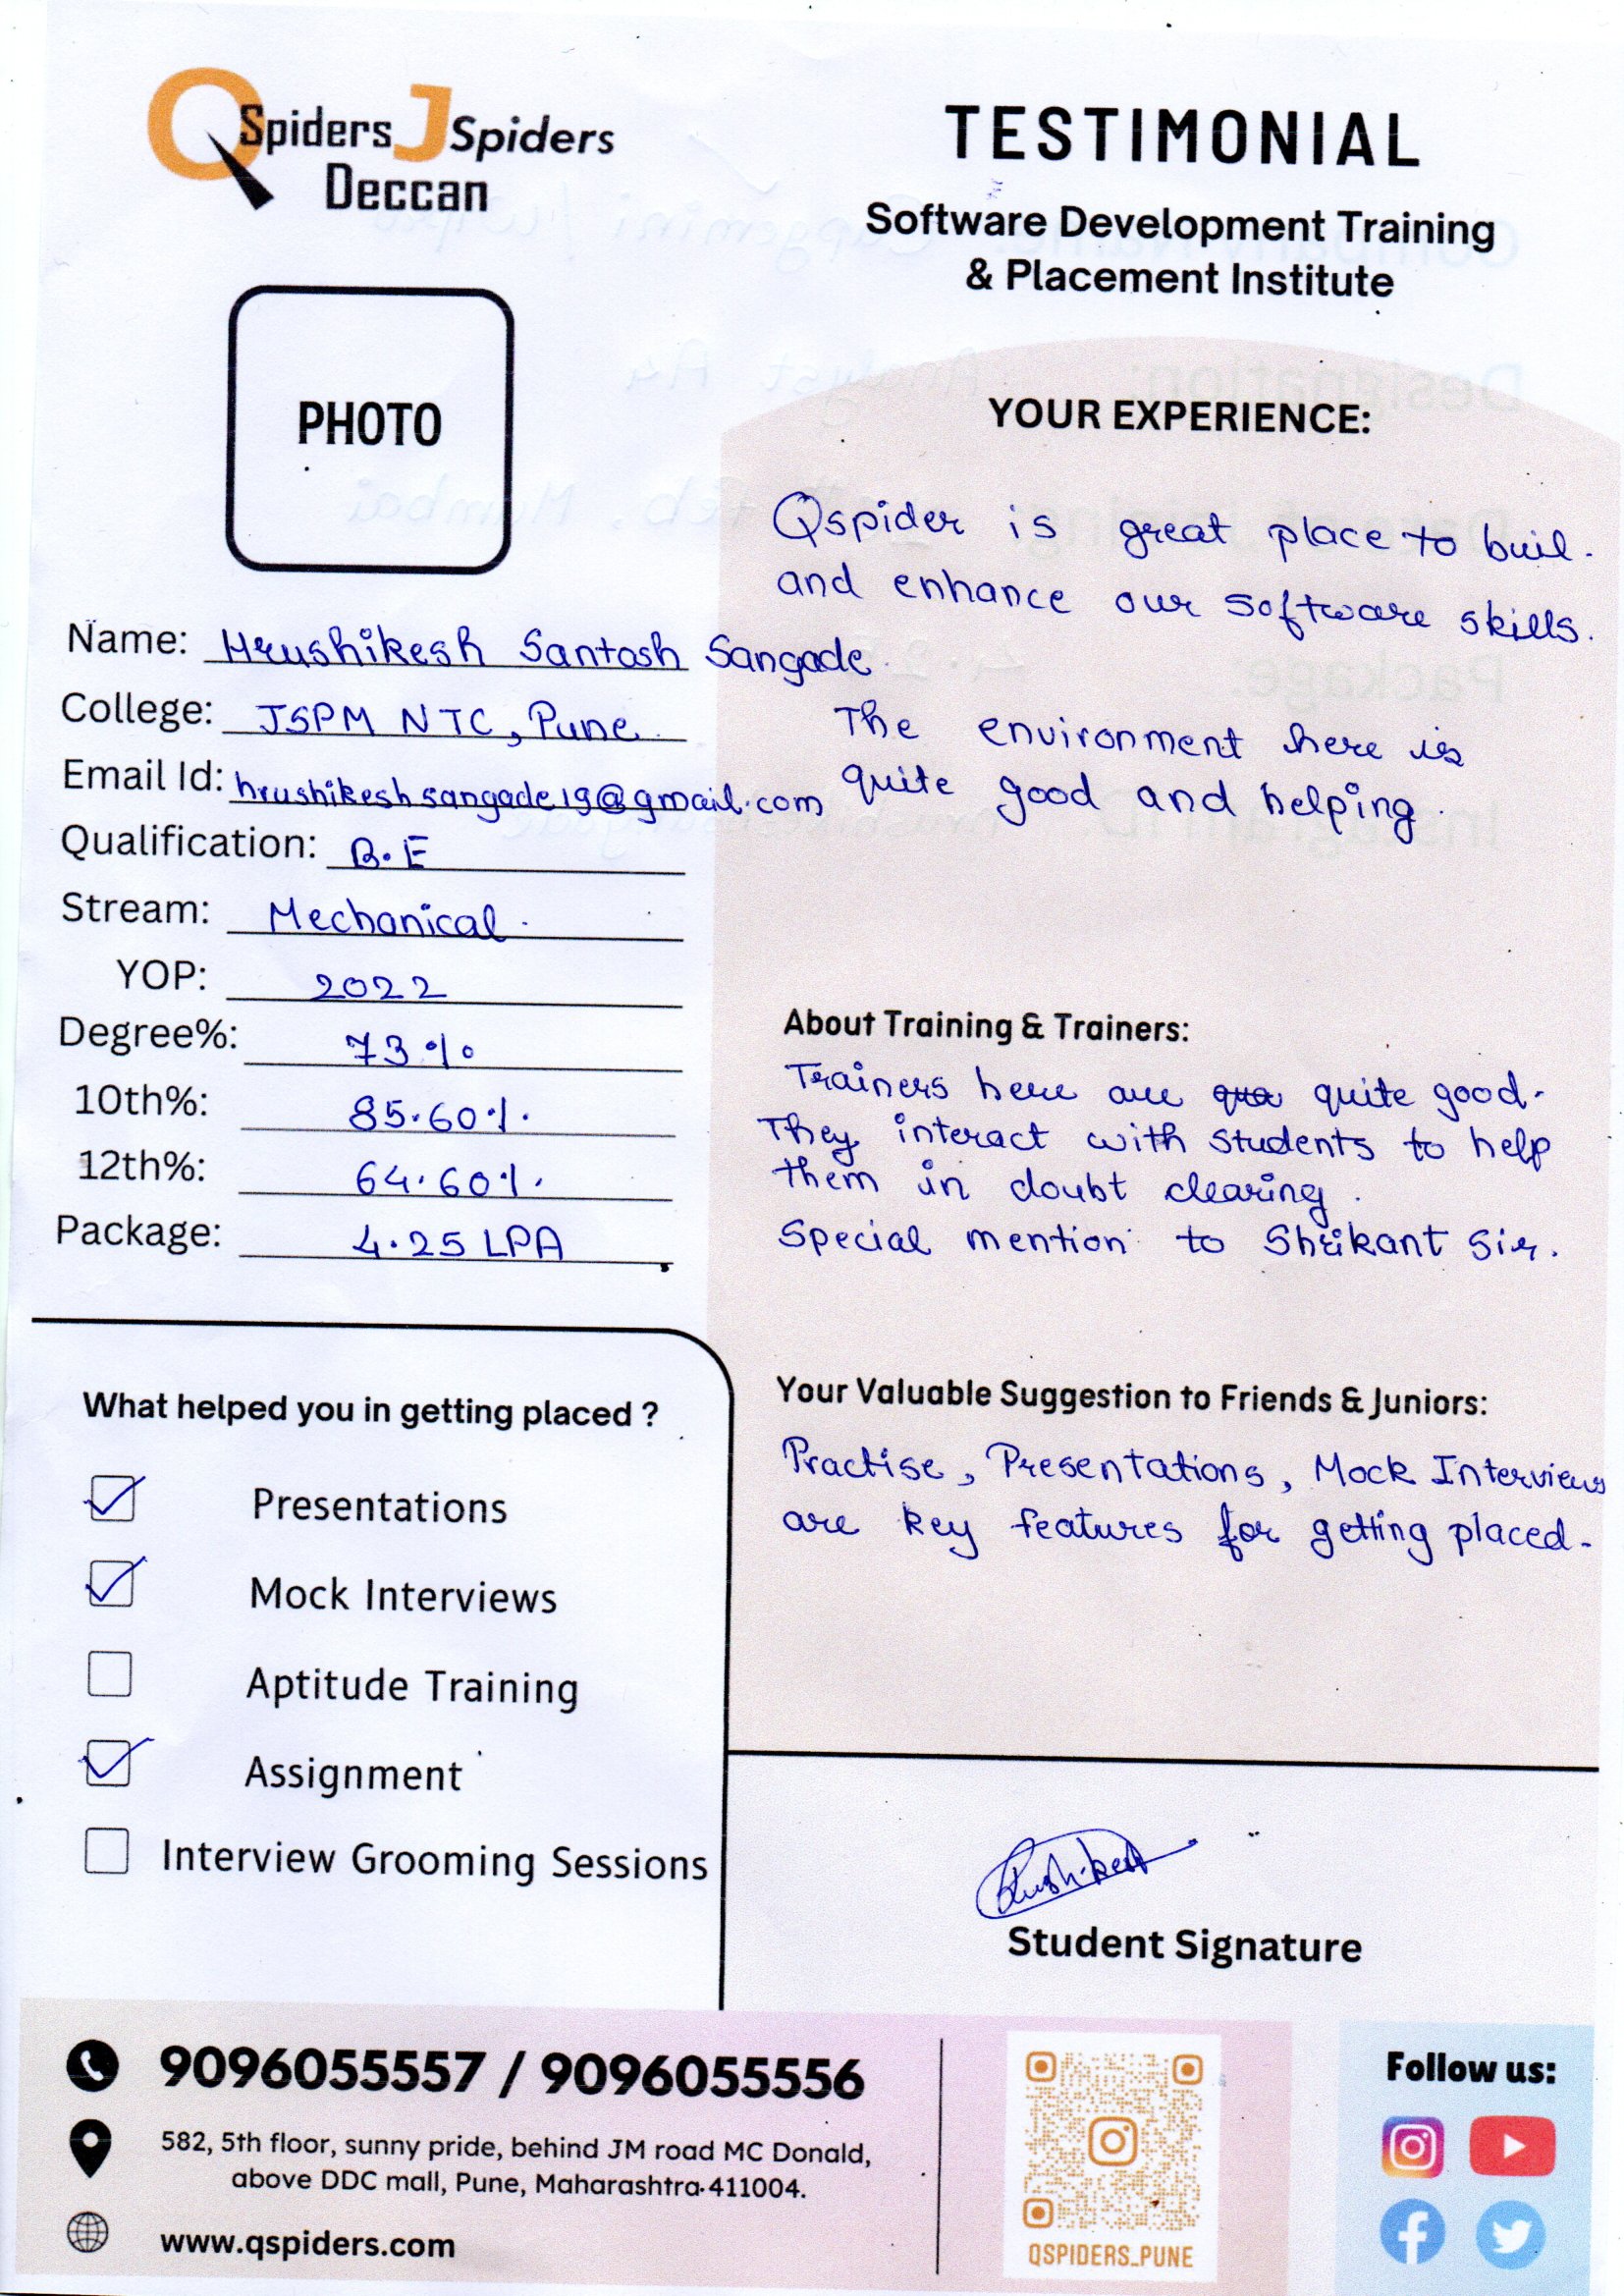 QSpiders JSpiders
Deccan
TESTIMONIAL
Software Development Training
& Placement Institute
PHOTO
Name: Hrushikesh Santosh Sangade
College: JSPM NTC, Pune
Email Id: hrushikeshsangade19@gmail.com
Qualification: B.E
Stream: Mechanical
YOP: 2022
Degree%: 73%
10th%: 85.60%
12th%: 64.60%
Package: 4.25 LPA
What helped you in getting placed ?
Presentations
Mock Interviews
Aptitude Training
Assignment
Interview Grooming Sessions
YOUR EXPERIENCE:
Qspider is great place to buil.
and enhance our software skills.
The environment here is
quite good and helping.
About Training & Trainers:
Trainers here are quite good.
They interact with students to help
them in doubt clearing.
Special mention to Shrikant Sir.
Your Valuable Suggestion to Friends & Juniors:
Practise, Presentations, Mock Interviews
are key features for getting placed.
Hrushikesh
Student Signature
9096055557 / 9096055556
582, 5th floor, sunny pride, behind JM road MC Donald,
above DDC mall, Pune, Maharashtra-411004.
www.qspiders.com
QSPIDERS_PUNE
Follow us: